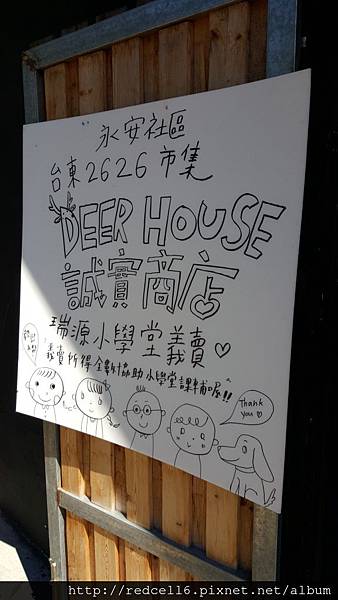 永安社區
台東2626市集
DEER HOUSE
誠實商店
瑞源小學堂義賣♡
義賣所得全數協助小學堂課輔喔!!
Thank
you ♡
http://redcell6.pixnet.net/album